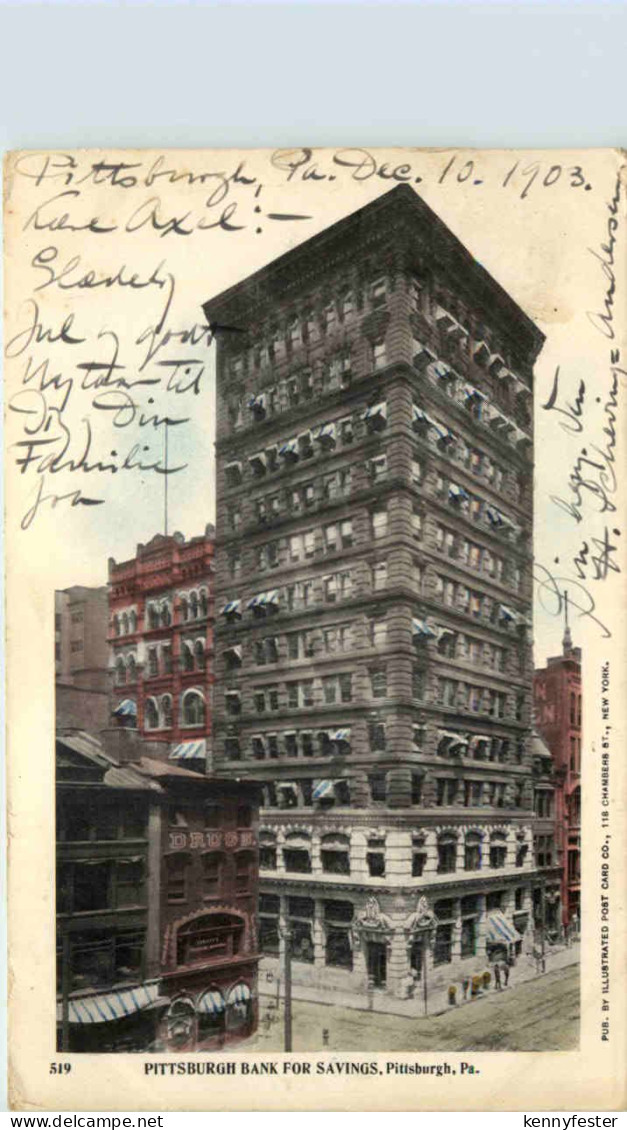 Pittsburgh, Pa. Dec. 10. 1903.
Kære Axel :—
Glædelig
Jul og godt
Nytaar til
Dig og Din
Familie
fra
Din hgv. Van
H. Schewing-Andersen
DRUGS
PUB. BY ILLUSTRATED POST CARD CO., 118 CHAMBERS ST., NEW YORK.
519 PITTSBURGH BANK FOR SAVINGS, Pittsburgh, Pa.
kennyfester